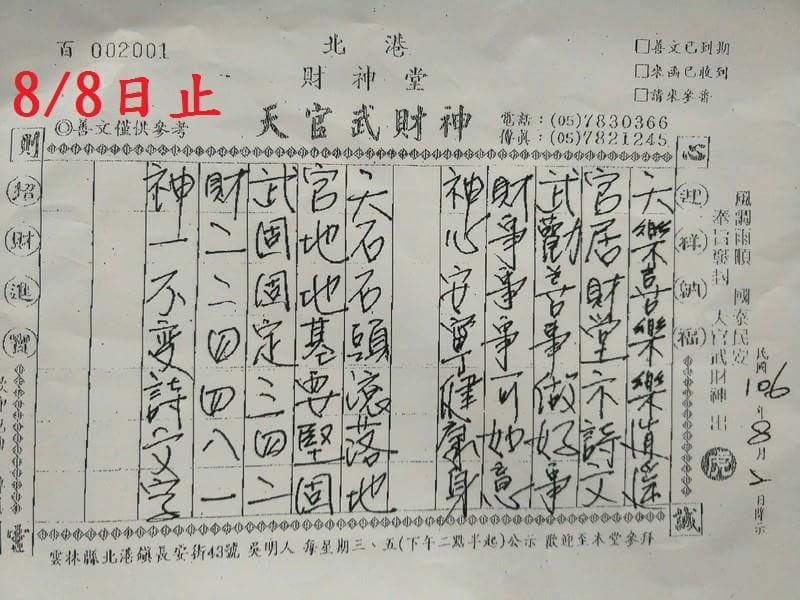 百 002001
8/8日止
◎善文僅供參考
北港
財神堂
天官武財神
□善文已到期
□來函已收到
□請來參香
電話：(05)7830366
傳真：(05)7821245
心
誠
財
迎祥納福
招財進寶
風調雨順 國泰民安
奉旨發封 天官武財神 出
民國106年8月2日降示
天樂喜樂樂道
官居財堂示詩文
武勸善事做好事
財事事事可如意
神心安寧健康身
天石石頭滾落地
官地地基要堅固
武固固定三四二
財二二四四八一
神一不變詩文字
雲林縣北港鎮長安街43號 吳明人 每星期三、五(下午二點半起)公示 歡迎至本堂參拜